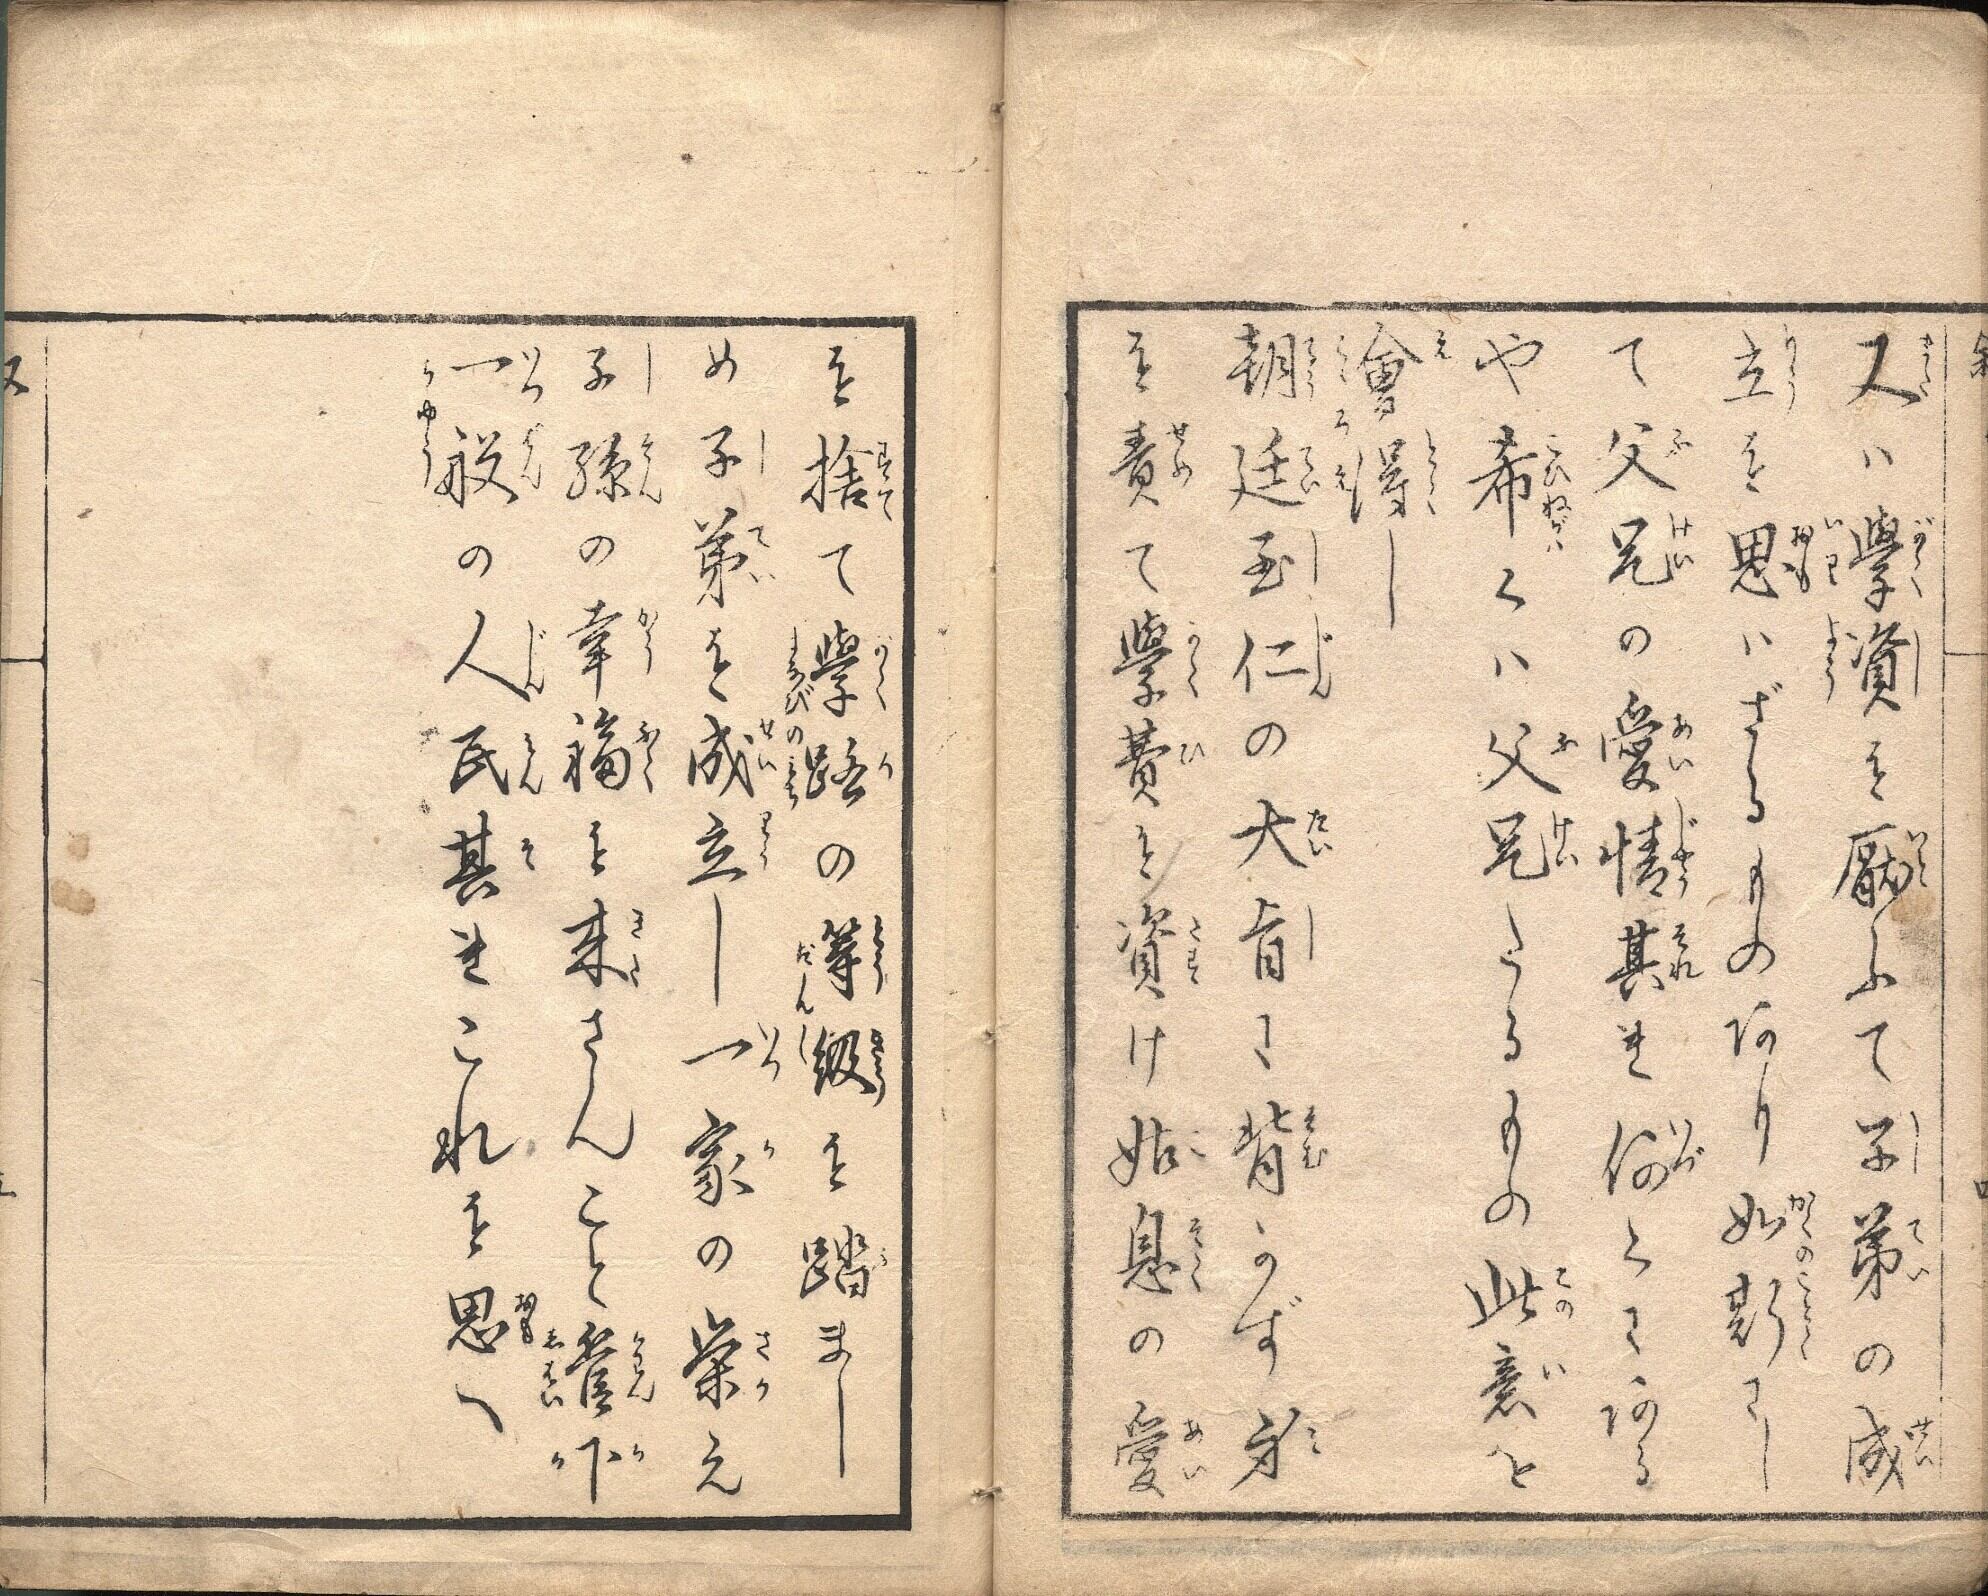 又ハ學資を厭ふて子弟の成
立を思ハざるものあり如斯にし
て父兄の愛情其れ何くにある
や希くハ父兄たるもの此意を
會得し
朝廷至仁の大旨に背かず身
を責て學費を資け姑息の愛
を捨て學路の等級を踏まし
め子弟を成立し一家の栄え
子孫の幸福を来さんこと管下
一般の人民其れこれを思へ